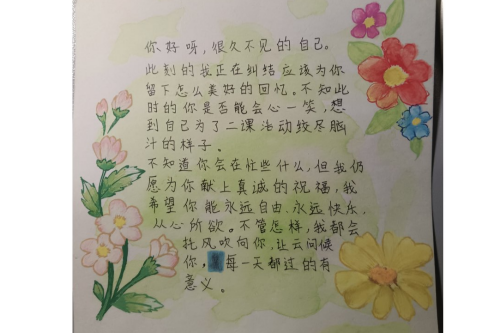 你好呀，很久不见的自己。
此刻的我正在纠结应该为你
留下怎么美好的回忆。不知此
时的你是否能会心一笑，想
到自己为了二课活动绞尽脑
汁的样子。
不知道你会在忙些什么，但我仍
愿为你献上真诚的祝福，我
希望你能永远自由、永远快乐、
从心所欲。不管怎样，我都会
托风吹向你，让云问候
你，每一天都过的有
意义。